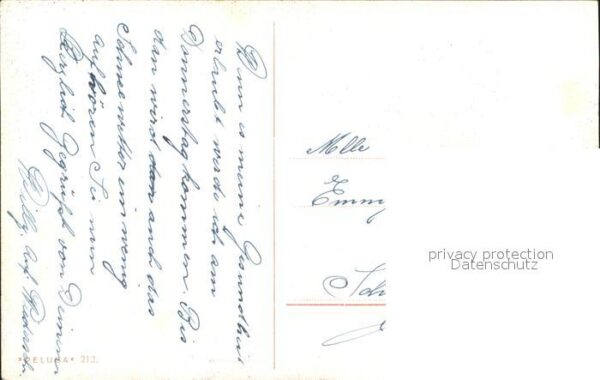 Wenn es meine Gesundheit
erlaubt werde ich am
Donnerstag kommen. Bis
dan wird dan auch das
Schneewetter ein wenig
aufhören Sei nun
Herzlich Gegrüßt von Deinem
Willy. Auf Wiederseh.
Mlle
Emmy
privacy protection
Datenschutz
"PELUBA" 213.